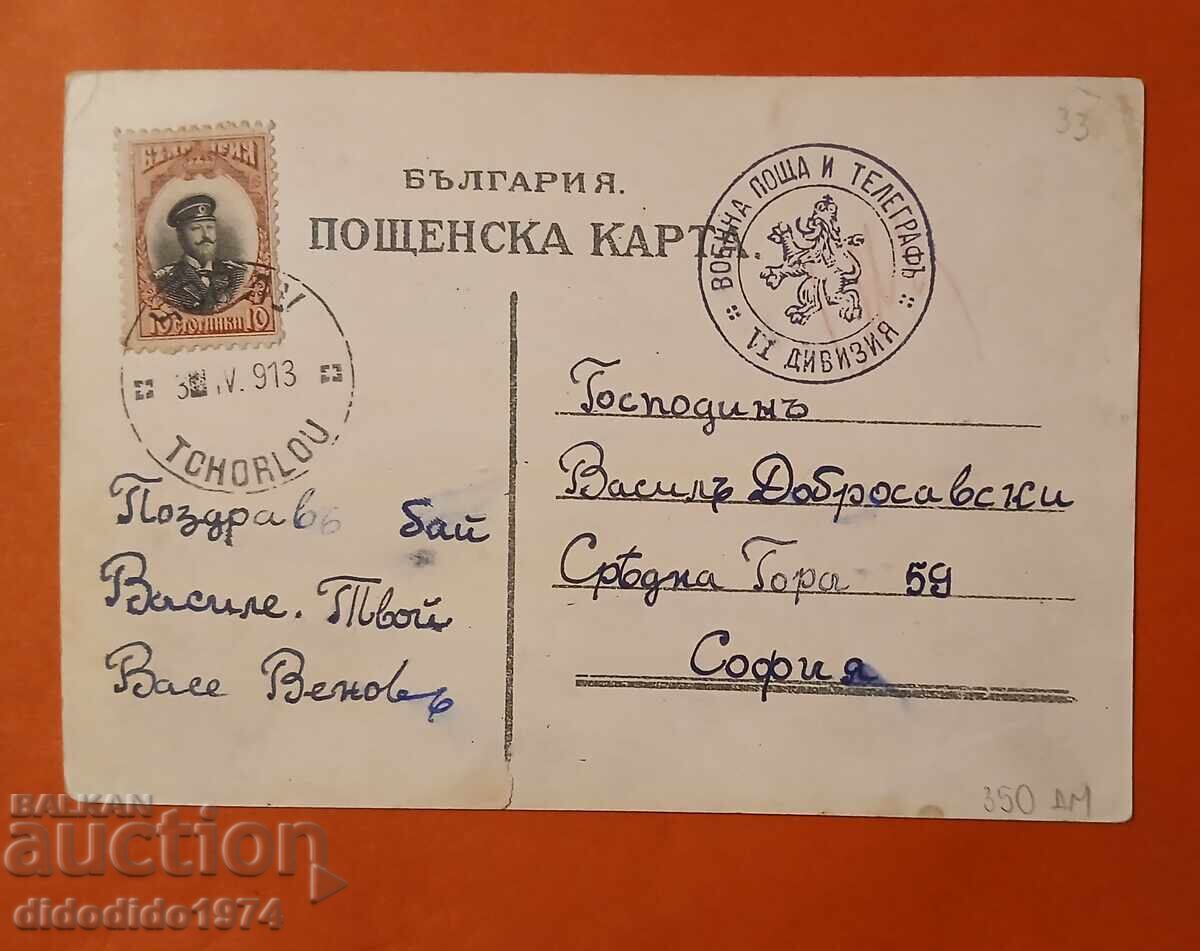 33
БЪЛГАРИЯ
10 СТОТИНКИ 10
БЪЛГАРИЯ.
ПОЩЕНСКА КАРТА.
ВОЕННА ПОЩА И ТЕЛЕГРАФЪ
11 ДИВИЗИЯ
IV. 913
TCHORLOU
Господинъ
Василъ Добросавски
Срѣдна Гора 59
София
Поздравъ бай
Василе. Твой
Васе Веновъ
350 ДМ
BALKAN
auction
didodido1974